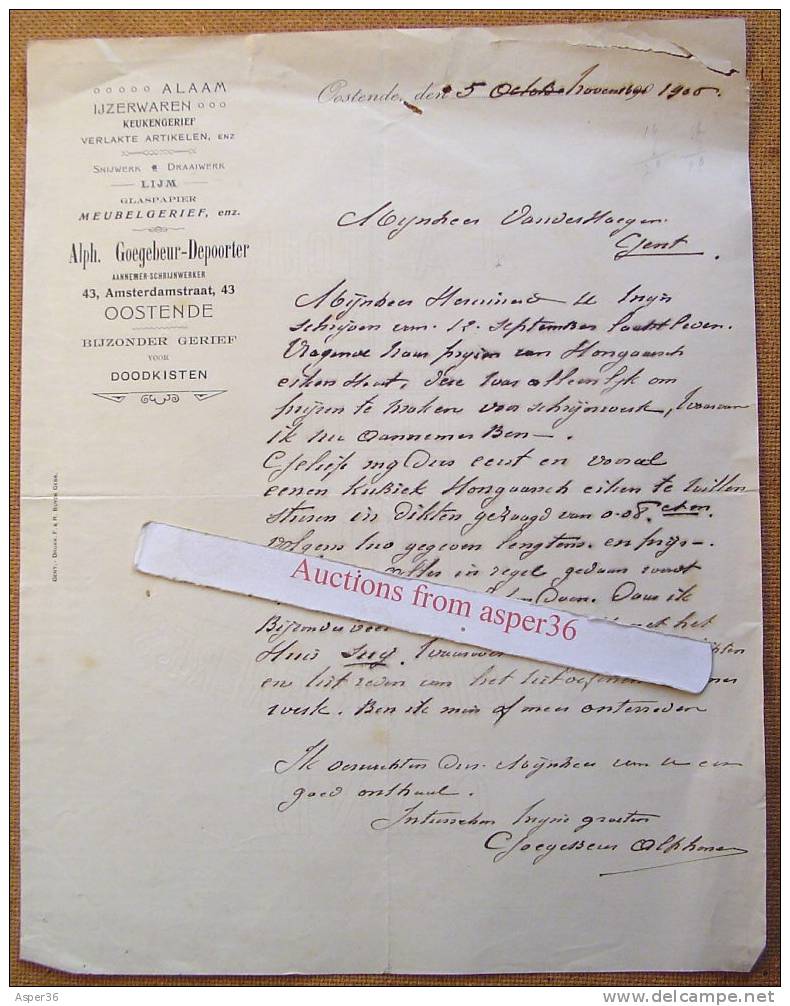 ALAAM
IJZERWAREN
KEUKENGERIEF
VERLAKTE ARTIKELEN, ENZ
SNIJWERK DRAAIWERK
LIJM
GLASPAPIER
MEUBELGERIEF, enz.
Alph. Goegebeur-Depoorter
AANNEMER-SCHRIJNWERKER
43, Amsterdamstraat, 43
OOSTENDE
BIJZONDER GERIEF
VOOR
DOODKISTEN
Oostende, den 5 November 190
Mynheer Vanderhaegen
Gent
Mijnheer
schrijven van 12 September
Vragende naar pryzen van Hongaarsch
eiken Hout, deze was alleenlyk om
prijzen te maken voor schrijnwerk, waarvan
ik nu aannemer Ben.
Gelief my dus eerst en vooral
eenen kubiek Hongaarsch eiken te willen
sturen in dikten gezaagd van 0.08
volgens uw gegeven lengtens en prijs
alles in regel gedaan word
doen. Daar ik
Bijzonder met het
Huis
en uit reden van het
werk. Ben ik min of meer ontevreden
Ik verwachten dus Mijnheer van U een
goed onthaal.
Intusschen groeten
Goegebeur Alphonse
GENT. - DRUKK. F. & R. BUYCK GEBR.
Auctions from asper36
Asper36
www.delcampe.net